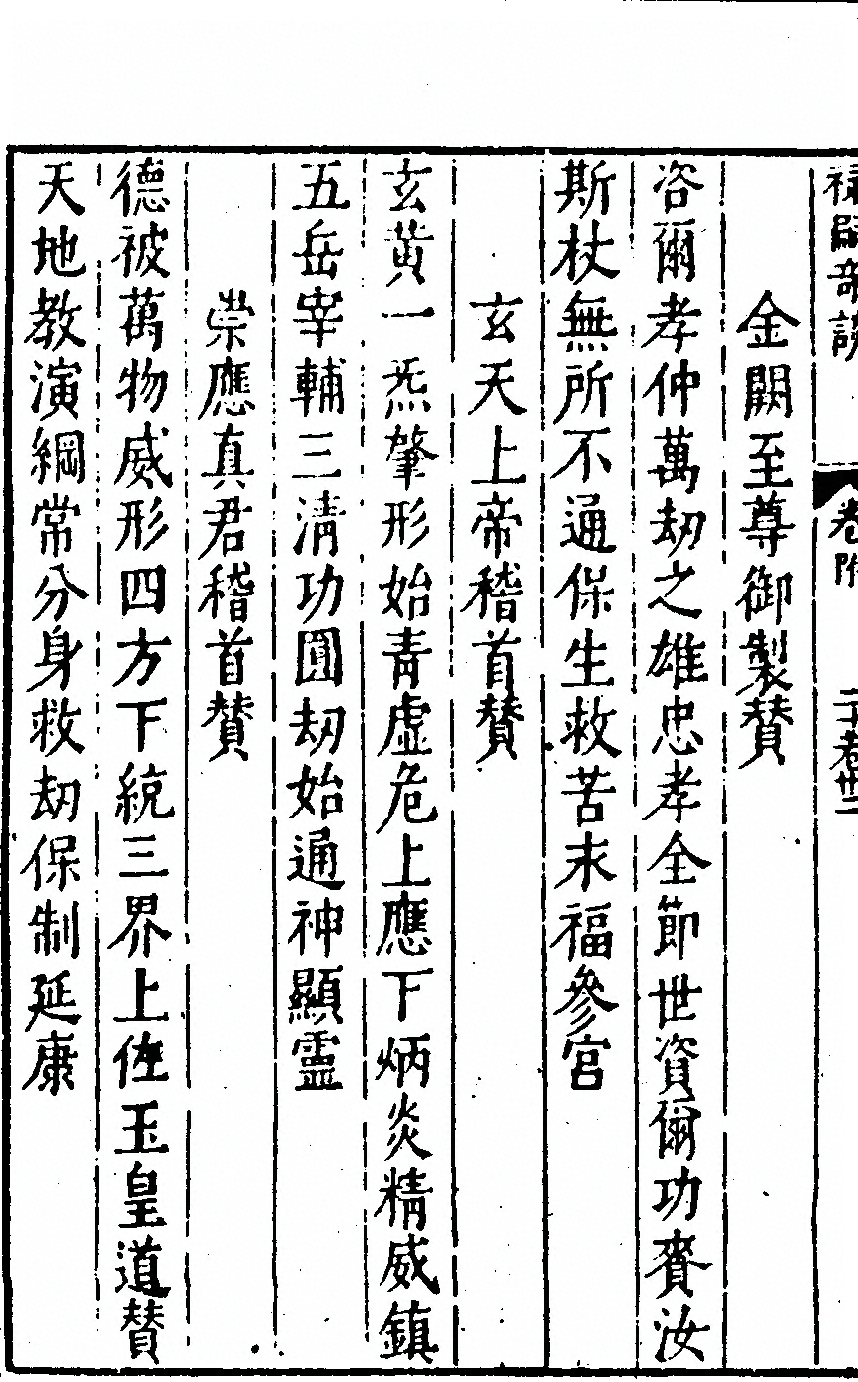 嗣奇談 卷附
金闕至尊御製贊
咨爾孝仲萬刧之雄忠孝全節世資爾功賚汝
斯杖無所不通保生救苦末福參宮
玄天上帝稽首贊
玄黃一炁肇形始青虛危上應下炳炎精威鎮
五岳宰輔三清功圓刧始通神顯靈
崇應真君稽首贊
德被萬物威形四方下統三界上佐玉皇道贊
天地教演綱常分身救刧保制延康